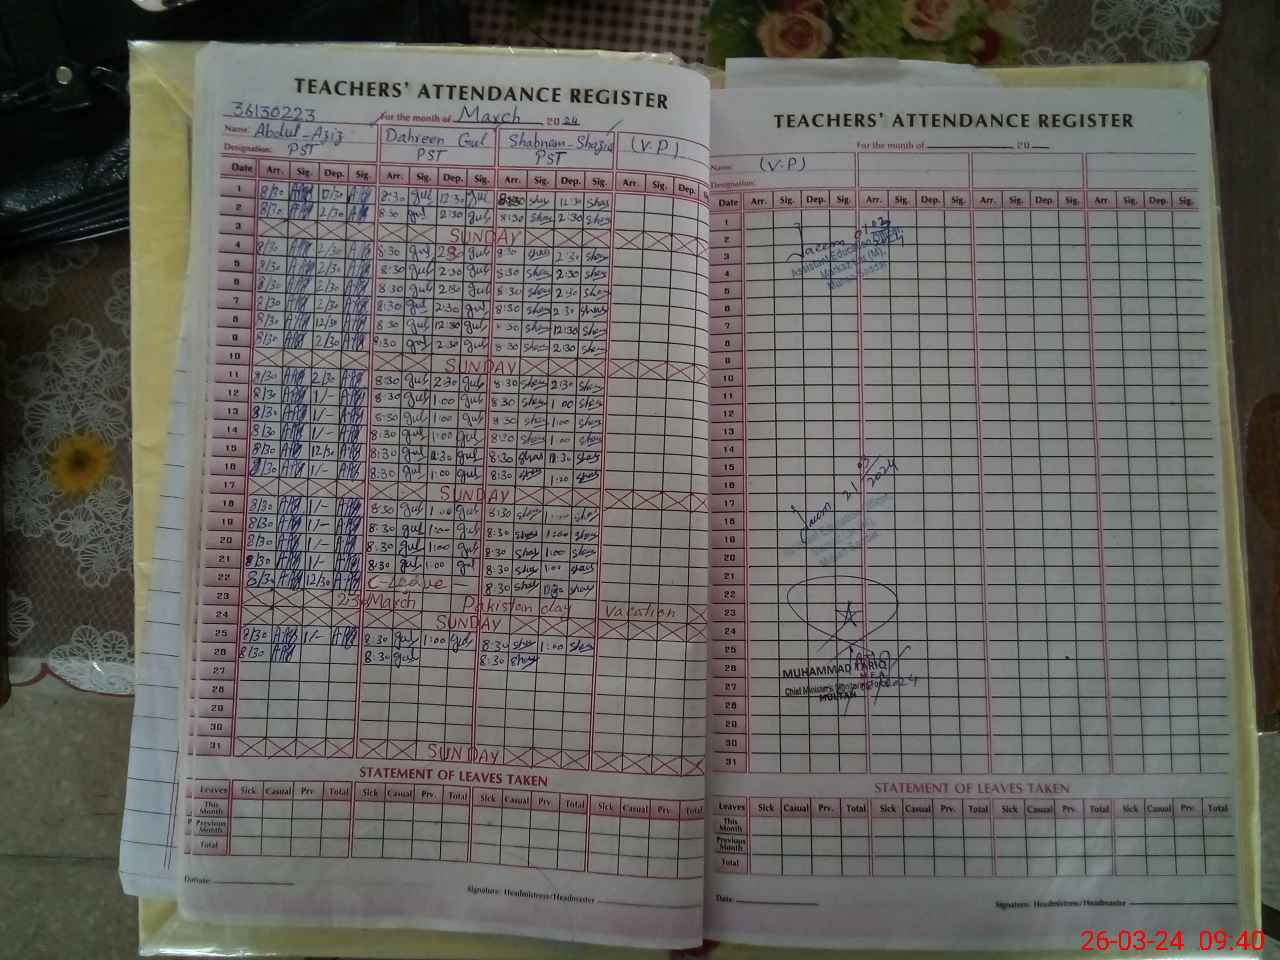 TEACHERS' ATTENDANCE REGISTER
36130223 For the month of March 2024
Name: Abdul-Aziz Dahreen Gul Shabnam-Shazia (V.P)
Designation: PST PST PST
Date Arr. Sig. Dep. Sig. Arr. Sig. Dep. Sig. Arr. Sig. Dep. Sig. Arr. Sig. Dep.
1 8:30 gul 12:30 gul 8:30 shas 12:30 shas
2 8:30 gul 2:30 gul 8:30 shas 2:30 shas
3 SUNDAY
4 8/30 2/30 8:30 gul 2:30 gul 8:30 2:30 shas
5 8/30 2/30 8:30 gul 2:30 gul 8:30 shas 2:30 shas
6 8/30 2/30 8:30 gul 2:30 gul 8:30 shas 2:30 shas
7 8/30 2/30 8:30 gul 2:30 gul 8:30 shas 2:30 shas
8 8/30 12/30 8:30 gul 12:30 gul shas 12:30 shas
9 8/30 2/30 8:30 gul 2:30 gul 8:30 shas 2:30 shas
10 SUNDAY
11 8/30 2/30 8:30 gul 2:30 gul 8:30 shas 2:30 shas
12 8/30 1/- 8:30 gul 1:00 gul 8:30 shas 1:00 shas
13 8/30 1/- 8:30 gul 1:00 gul 8:30 shas 1:00 shas
14 8/30 1/- 8:30 gul 1:00 gul 8:30 shas 1:00 shas
15 8/30 12/30 8:30 gul 12:30 gul 8:30 shas 12:30 shas
16 8/30 1/- 8:30 gul 1:00 gul 8:30 shas 1:00 shas
17 SUNDAY
18 8/30 1/- 8:30 gul 1:00 gul 8:30 shas 1:00 shas
19 8/30 1/- 8:30 gul 1:00 gul 8:30 shas 1:00 shas
20 8/30 1/- 8:30 gul 1:00 gul 8:30 shas 1:00 shas
21 8/30 1/- 8:30 gul 1:00 gul 8:30 shas 1:00 shas
22 8/30 12/30 C-Leave 8:30 shas shas
23 23 March Pakistan day vacation
24 SUNDAY
25 8/30 1/- 8:30 gul 1:00 gul 8:30 shas 1:00 shas
26 8/30 8:30 gul 8:30 shas
27
28
29
30
31 SUNDAY
STATEMENT OF LEAVES TAKEN
Leaves Sick Casual Prv. Total Sick Casual Prv. Total Sick Casual Prv. Total Sick Casual Prv. Total
This Month
Previous Month
Total
Signature: Headmistress/Headmaster
TEACHERS' ATTENDANCE REGISTER
For the month of 20
Name: (V.P)
Designation:
Date Arr. Sig. Dep. Sig. Arr. Sig. Dep. Sig. Arr. Sig. Dep. Sig. Arr. Sig. Dep. Sig.
1
2
3
4
5
6
7
8
9
10
11
12
13
14
15
16
17
18
19
20
21
22
23
24
25
26
27
28
29
30
31
Assistant Education
21/03/2024
MUHAMMAD TARIQ
M.E.A
Chief Minister's Monitoring Force
MULTAN
STATEMENT OF LEAVES TAKEN
Leaves Sick Casual Prv. Total Sick Casual Prv. Total Sick Casual Prv. Total Sick Casual Prv. Total
This Month
Previous Month
Total
Date Signature: Headmistress/Headmaster
26-03-24 09:40